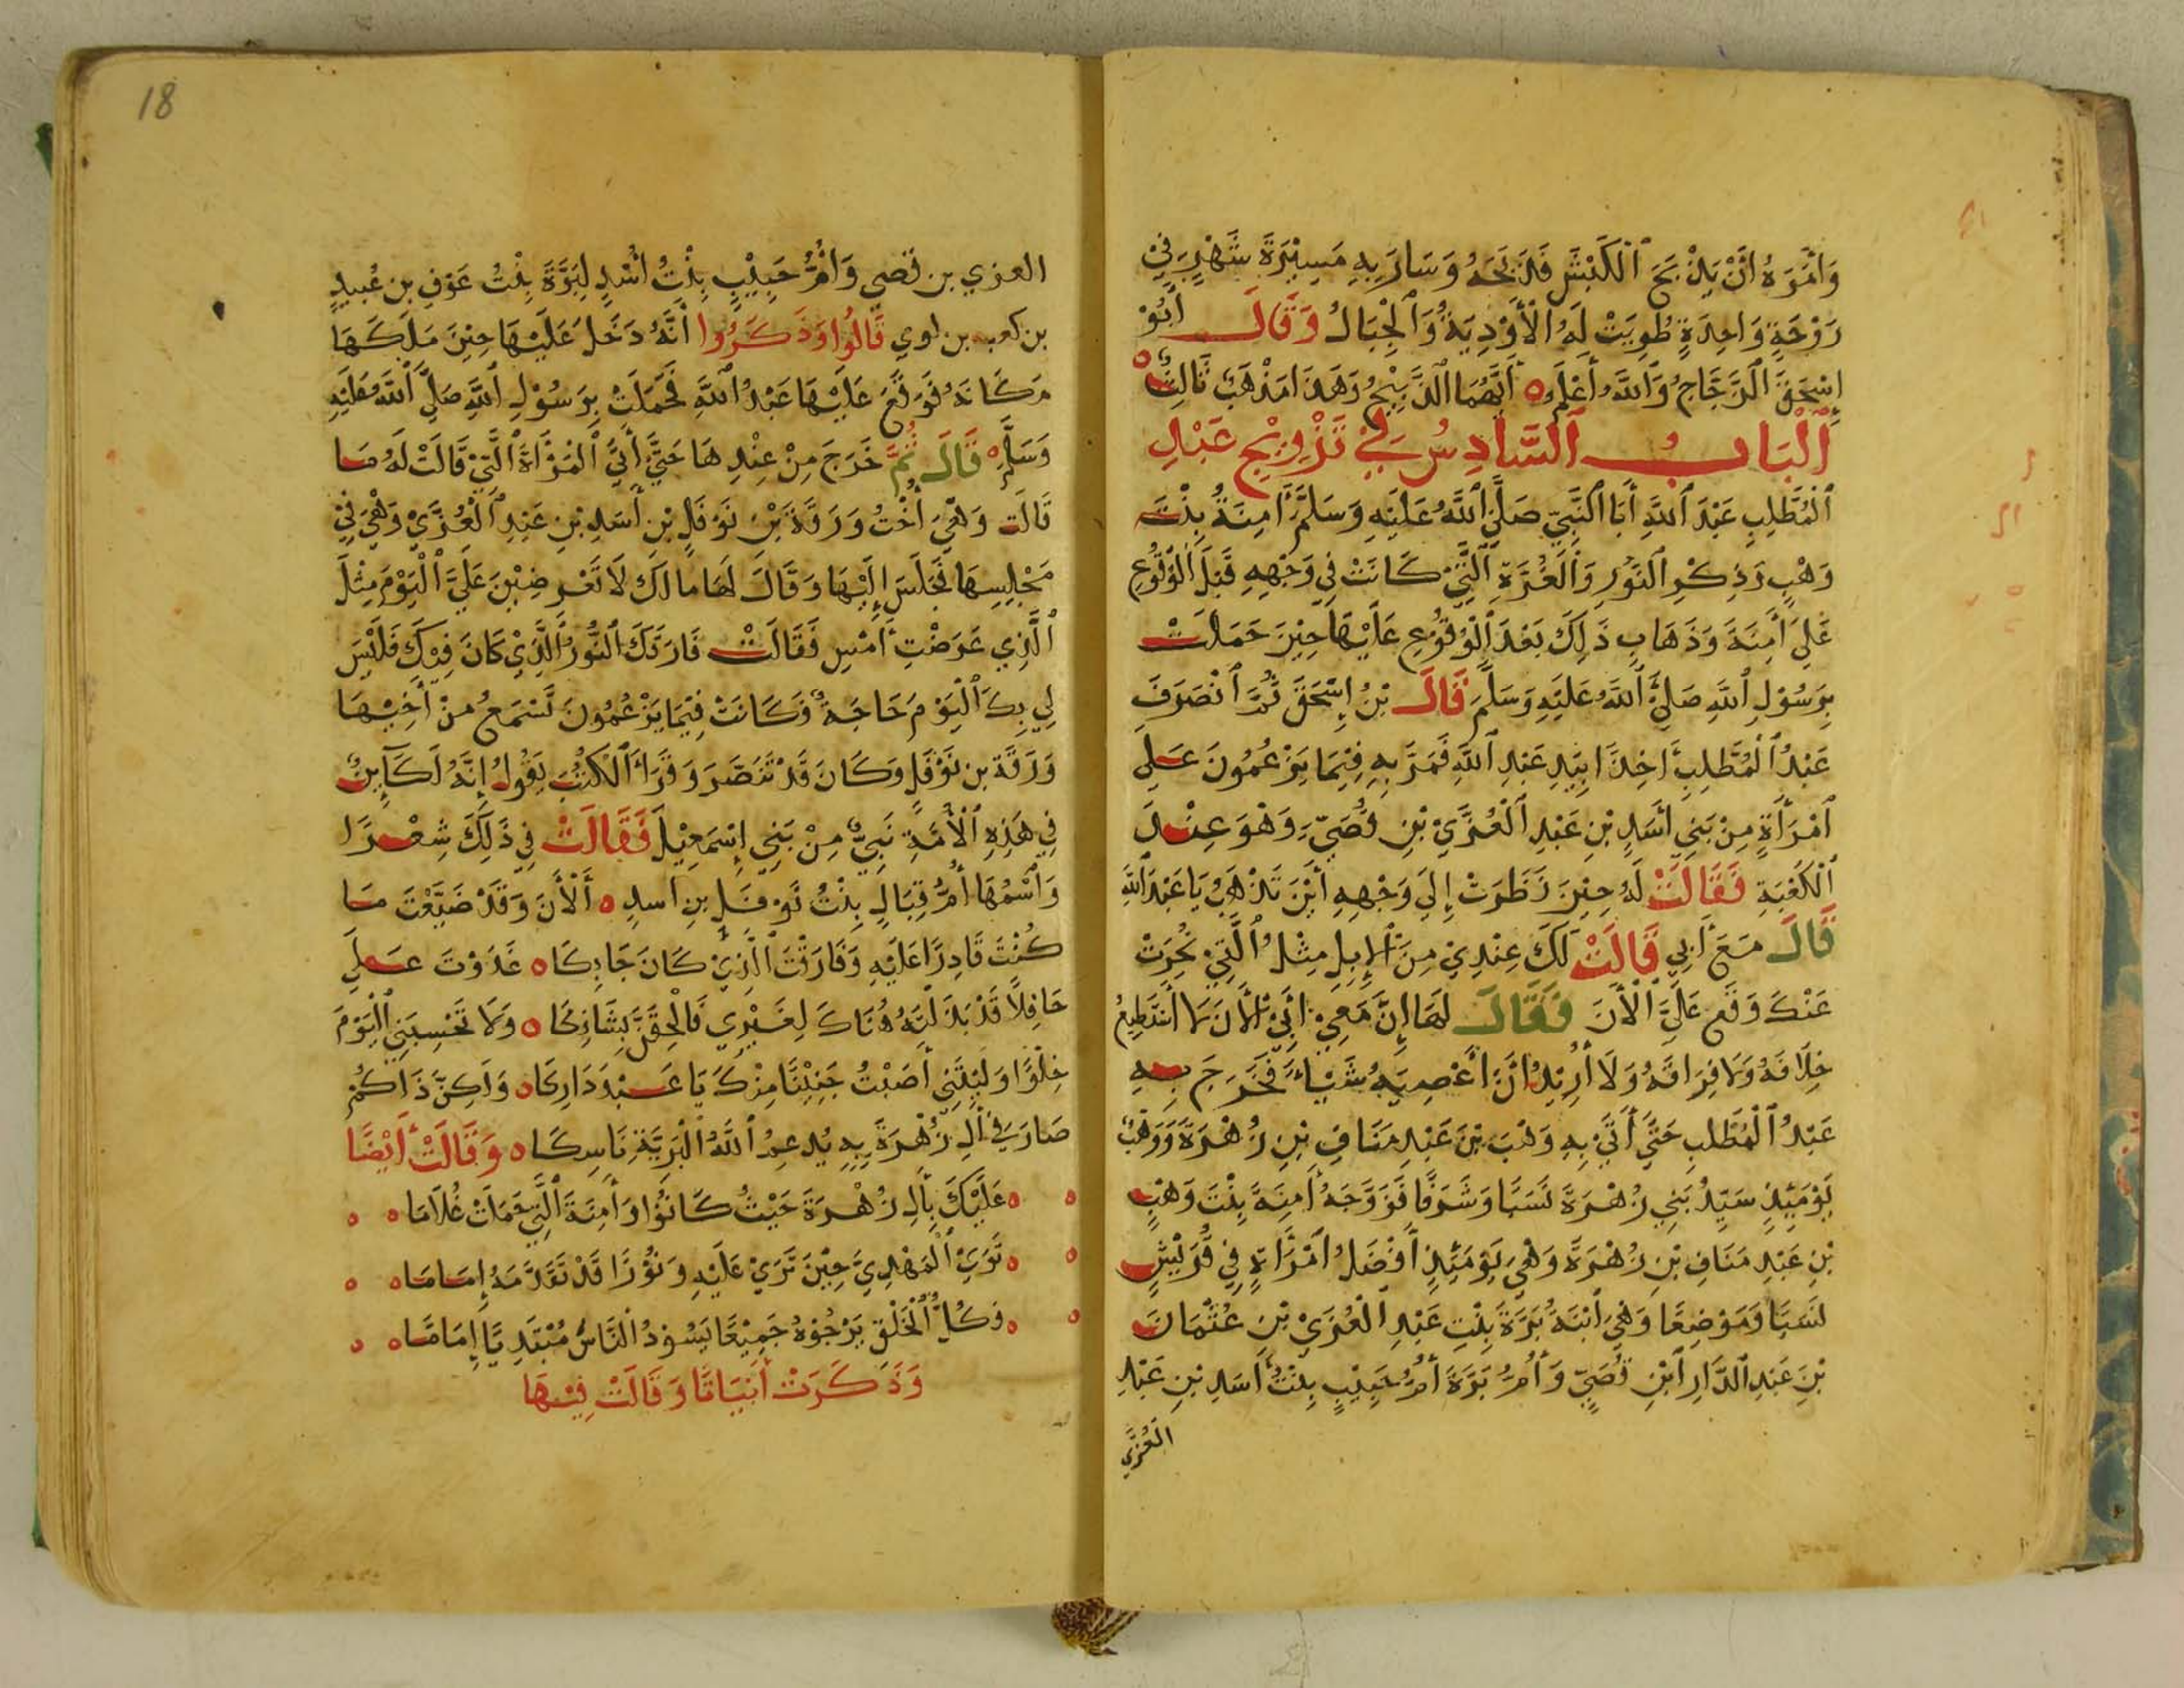 وَأَمَرَهُ أَنْ يَذْبَحَ ٱلْكَبْشَ فَذَبَحَهُ وَسَارَ بِهِ مَسِيْرَةَ شَهْرٍ فِيْ
رَوْحَةٍ وَاحِدَةٍ طُوِيَتْ لَهُ ٱلْأَوْدِيَةُ وَٱلْجِبَالُ وَقَالَ أَبُوْ
إِسْحَقَ ٱلزَّجَّاجُ وَٱللَّهُ أَعْلَمُ أَيُّهُمَا ٱلذَّبِيْحُ وَهَذَا مَذْهَبٌ ثَالِثٌ
ٱلْبَابُ ٱلسَّادِسُ فِيْ تَزْوِيْجِ عَبْدِ
ٱلْمُطَّلِبِ عَبْدَ ٱللَّهِ أَبَا ٱلنَّبِيِّ صَلَّىٱللَّهُ عَلَيْهِ وَسَلَّمَ آمِنَةَ بِنْتَ
وَهْبٍ وَذِكْرِ ٱلنُّوْرِ وَٱلْغُرَّةِ ٱلَّتِيْ كَانَتْ فِي وَجْهِهِ قَبْلَ ٱلْوُقُوْعِ
عَلَى آمِنَةَ وَذَهَابِ ذَلِكَ بَعْدَ ٱلْوُقُوْعِ عَلَيْهَا حِيْنَ حَمَلَتْ
بِرَسُوْلِ ٱللَّهِ صَلَّى ٱللَّهُ عَلَيْهِ وَسَلَّمَ قَالَ بْنُ إِسْحَقَ ثُمَّ ٱنْصَرَفَ
عَبْدُ ٱلْمُطَّلِبِ آخِذًا بِيَدِ عَبْدِ ٱللَّهِ فَمَرَّ بِهِ فِيْمَا يَزْعُمُونَ عَلَي
ٱمْرَأَةٍ مِنْ بَنِي أَسَدِ بْنِ عَبْدِ ٱلْعُزَّيْ بْنِ قُصَيٍّ وَهْوَ عِنْدَ
ٱلْكَعْبَةِ فَقَالَتْ لَهُ حِيْنَ نَظَرَتْ إِلَي وَجْهِهِ أَيْنَ تَذْهَبُ يَا عَبْدَ ٱللَّهِ
قَالَ مَعَ أَبِي قَالَتْ لَكَ عِنْدِيْ مِنَ ٱلْإِبِلِ مِثْلُ ٱلَّتِيْ نُحِرَتْ
عَنْكَ وَقَعْ عَلَيَّ ٱلْأَنَ فَقَالَ لَهَا إِنَّ مَعِيْ أَبِيْ ٱلْأَنَ لَا أَسْتَطِيْعُ
خِلَافَهُ وَلَا فِرَاقَهُ وَلَا أُرِيْدُ أَنْ أَعْصِيَهُ شَيْئًا فَخَرَجَ بِهِ
عَبْدُ ٱلْمُطَّلِبِ حَتَّي أَتَيْ بِهِ وَهْبَ بْنَ عَبْدِ مَنَافِ بْنِ زُهْرَةَ وَوَهْبٌ
يَوْمَئِذٍ سَيِّدُ بَنِي زُهْرَةَ نَسَبًا وَشَرَفًا فَزَوَّجَهُ آمِنَةَ بِنْتَ وَهْبٍ
بْنِ عَبْدِ مَنَافِ بْنِ زُهْرَةَ وَهْيَ يَوْمَئِذٍ أَفْضَلُ ٱمْرَأَةٍ فِي قُرَيْشٍ
نَسَبًا وَمَوْضِعًا وَهْيَ ٱبْنَةُ بَرَّةَ بِنْتِ عَبْدِ ٱلْعُزَيْ بْنِ عُثْمَانَ
بْنَ عَبْدِ ٱلدَّارِ ٱبْنِ قُصَيٍّ وَأُمُّ بَرَّةَ أُمُّ حَبِيْبٍ بِنْتُ أَسَدِ بْنِ عَبْدِ
العُزَّي
18
العزي بن قصي وَأُمُّ حَبِيْبٍ بِنْتُ أَسَدٍ لِبَرَّةَ بِنْتُ عَوْفِ بن عُبيدٍ
بن كعب بن لوي قَالُوْا وَذَكَرُوا أَنَّهُ دَخَلَ عَلَيْهَا حِيْنَ مَلَكَهَا
مَكَانَهُ فَوَقَعَ عَلَيْهَا عَبْدُ ٱللَّهِ فَحَمَلَتْ بِرَسُوْلِ ٱللَّهِ صَلَّي ٱللَّهُ عَلَيْهِ
وَسَلَّمَ قَالَ ثُمَّ خَرَجَ مِنْ عِنْدِهَا حَتَّيْ أَتَيَ ٱلْمَرْأَةَ ٱلَّتِيْ قَالَتْ لَهُ مَا
قَالَت وَهْيَ أُخْتُ وَرَقَةَ بْنِ نَوْفَلِ بْنِ أَسَدِ بْنِ عَبْدِ ٱلْعُزَّيْ وَهْيَ فِيْ
مَجْلِسِهَا فَجَلَسَ إِلَيْهَا وَقَالَ لَهَا مالك لَا تَعْرِضِيْنَ عَلَيَّ ٱلْيَوْمَ مِثْلَ
ٱلَّذِي عَرَضْتِ أَمْسِ فَقَالَتْ فَارَقَكَ ٱلنُّورُ ٱلَّذِيْ كَانَ فِيْكَ فَلَيْسَ
لِي بِكَ ٱلْيَوْمَ حَاجَةٌ وَكَانَتْ فِيْمَا يَزْعُمُونَ تَسْمَعُ مِنْ أَخِيْهَا
وَرَقَةَ بن نَوْفَلٍ وَكَانَ قَدْ تَنَصَّرَ وَقَرَأَ ٱلْكُتُبَ يَقُولُ إِنَّهُ لَكَائِنٌ
فِي هَذِهِ ٱلْأُمَّةِ نَبِيٌّ مِنْ بَنِي إِسْمَعِيْلَ فَقَالَتْ فِي ذَلِكَ شِعْرًا
وَٱسْمُهَا أُمُّ قِتَالٍ بِنْتُ نَوْفَلِ بن أسدِ أَلْأَنَ وَقَدْ ضَيَّعْتَ مَا
كُنْتَ قَادِرًا عَلَيْهِ وَفَارَقْتَ ٱلَّذِيْ كَانَ جَابِكَا غَدَوْتَ عَلَي
حَافِلًا قَدْ بَذَلْتَهُ هُنَاكَ لِغَيْرِي فَالْحِقَنَّ بِشَانِكَا وَلَا تَحْسِبَنِي ٱلْيَوْمَ
خِلْوًا وَلَيْتَنِي أَصَبْتُ جَنِيْنًا مِنْكَ يَا عَبْدَ دَارِكَا وَلَكِنْ ذَاكُمْ
صَارَ فِيْ آلِ زُهْرَةَ بِهِ يُدعِمُ ٱللَّهُ ٱلْبَرِيَّةَ نَاسِكَا وَقَالَتْ أَيْضًا
عَلَيْكَ بِآلِ زُهْرَةَ حَيْثُ كَانُوْا وَآمِنَةَ ٱلَّتِي حَمَلَتْ غُلَامَا
تَرَيْ ٱلْمَهْدِيَّ حِيْنَ تَرَيْ عَلَيْهِ وَنُوْرًا قَدْ تَقَدَّمَهُ إِمَامَا
وَكُلُّ ٱلْخَلْقِ يَرْجُوْهُ جَمِيْعًا يَسُوْدُ ٱلنَّاسَ مُهْتَدِيًا إِمَامَا
وَذَكَرَتْ أَبْيَاتًا وَقَالَتْ فِيْهَا